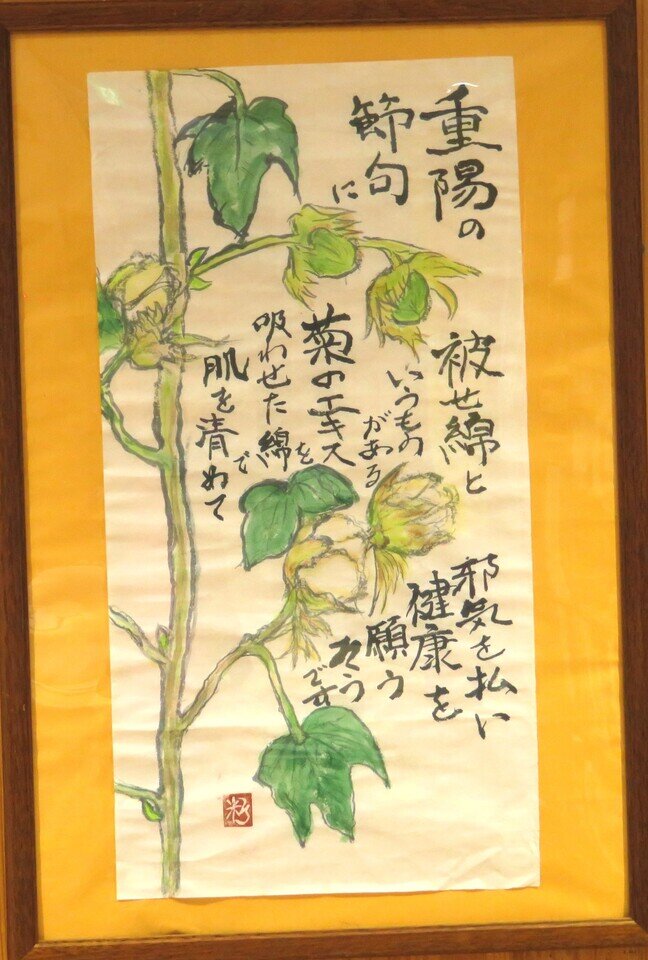 重陽の
節句に
被せ綿と
いうもの
がある
菊のエキスを
吸わせた綿で
肌を清めて
邪気を払い
健康を
願う
そうです